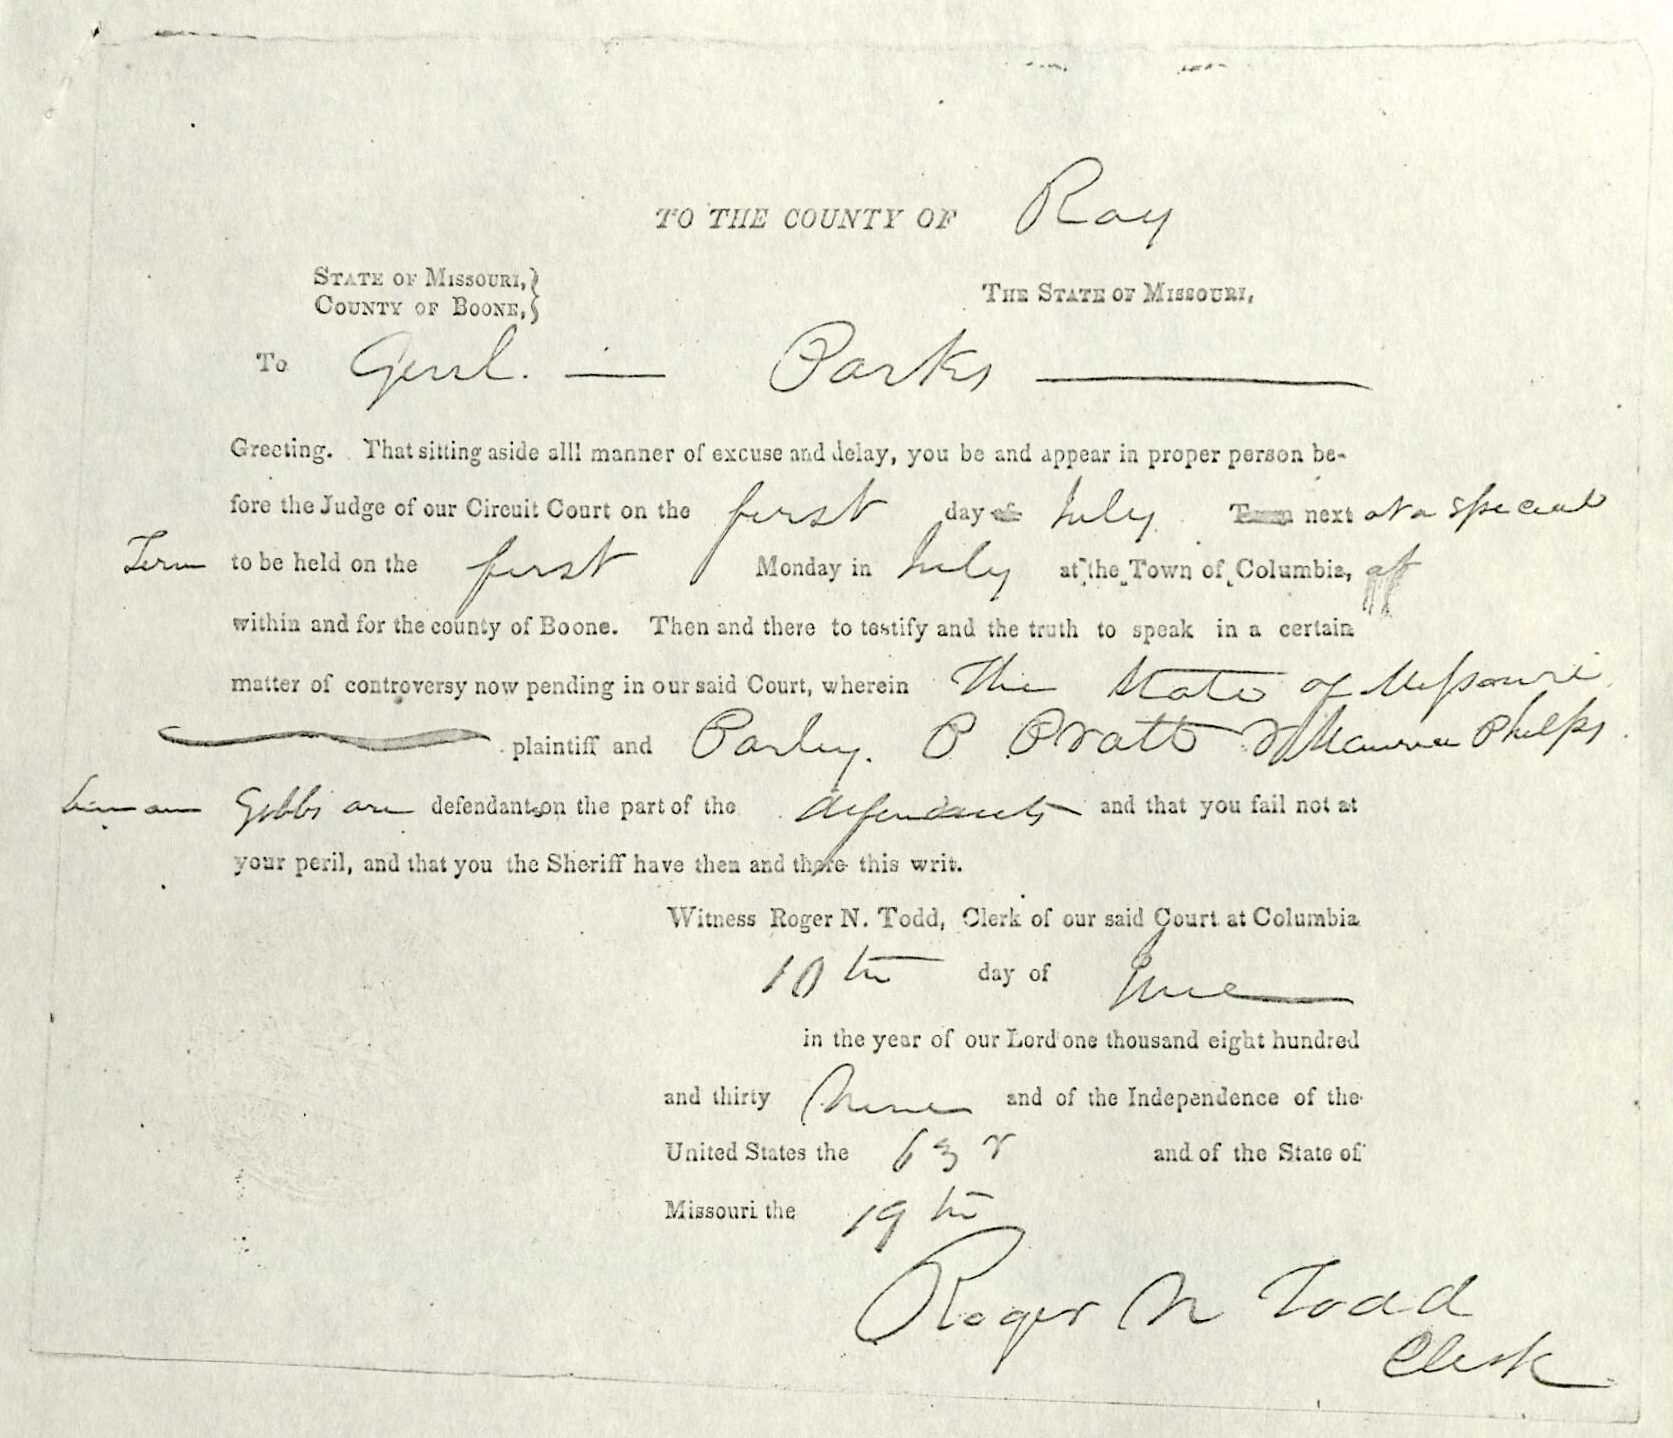 TO THE COUNTY OF Ray
STATE OF MISSOURI,}
COUNTY OF BOONE,}
THE STATE OF MISSOURI,
To Genl. — Parks —
Greeting. That sitting aside alll manner of excuse and delay, you be and appear in proper person be-
fore the Judge of our Circuit Court on the first day of July Term next at a special
Term to be held on the first Monday in July at the Town of Columbia,
within and for the county of Boone. Then and there to testify and the truth to speak in a certain
matter of controversy now pending in our said Court, wherein The State of Missouri
plaintiff and Parley. P Pratt Phelps
Gibbs are defendants on the part of the defendants and that you fail not at
your peril, and that you the Sheriff have then and there this writ.
Witness Roger N. Todd, Clerk of our said Court at Columbia
10th day of June
in the year of our Lord one thousand eight hundred
and thirty Nine and of the Independence of the
United States the 63r and of the State of
Missouri the 19th
Roger N Todd
Clerk